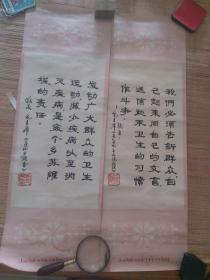 我們必須告訴群众自
己起来同自己的文盲
迷信和不卫生的习惯
作斗争
发动广大群众的卫生
运动减少疾病以至消
灭疾病是每个乡苏维
埃的责任。